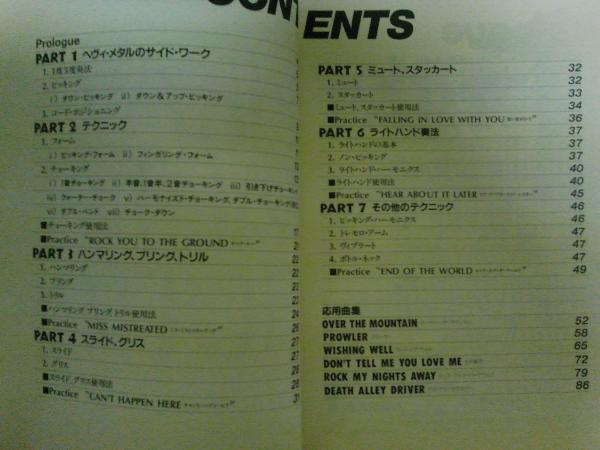 CONTENTS
Prologue
PART 1 ヘヴィ・メタルのサイド・ワーク
1. 1度5度奏法
2. ピッキング
i) ダウン・ピッキング ii) ダウン&アップ・ピッキング
3. コード・ポジショニング
PART 2 テクニック
1. フォーム
i) ピッキング・フォーム ii) フィンガリング・フォーム
2. チョーキング
i) 1音チョーキング ii) 半音、1音半、2音チョーキング iii) 引き下げチョーキング
iv) クォーター・チョーク v) ハーモナイズド・チョーキング、ダブル・チョーキング
vi) ダブル・ベンド vii) チョーク・ダウン
■チョーキング使用法
■Practice "ROCK YOU TO THE GROUND"
PART 3 ハンマリング、プリング、トリル 22
1. ハンマリング 22
2. プリング 23
3. トリル 23
■ハンマリング プリング トリル使用法 24
■Practice "MISS MISTREATED" 26
PART 4 スライド、グリス 27
1. スライド 27
2. グリス 28
■スライド、グリス使用法 28
■Practice "CAN'T HAPPEN HERE"
PART 5 ミュート、スタッカート 32
1. ミュート 32
2. スタッカート 33
■ミュート、スタッカート使用法 34
■Practice "FALLING IN LOVE WITH YOU" 36
PART 6 ライトハンド奏法 37
1. ライトハンドの基本 37
2. ノン・ピッキング 37
3. ライトハンド・ハーモニクス 40
■ライトハンド使用法 40
■Practice "HEAR ABOUT IT LATER" 45
PART 7 その他のテクニック 46
1. ピッキング・ハーモニクス 46
2. トレモロ・アーム 47
3. ヴィブラート 47
4. ボトル・ネック 47
■Practice "END OF THE WORLD" 49
応用曲集
OVER THE MOUNTAIN 52
PROWLER 58
WISHING WELL 65
DON'T TELL ME YOU LOVE ME 72
ROCK MY NIGHTS AWAY 79
DEATH ALLEY DRIVER 86